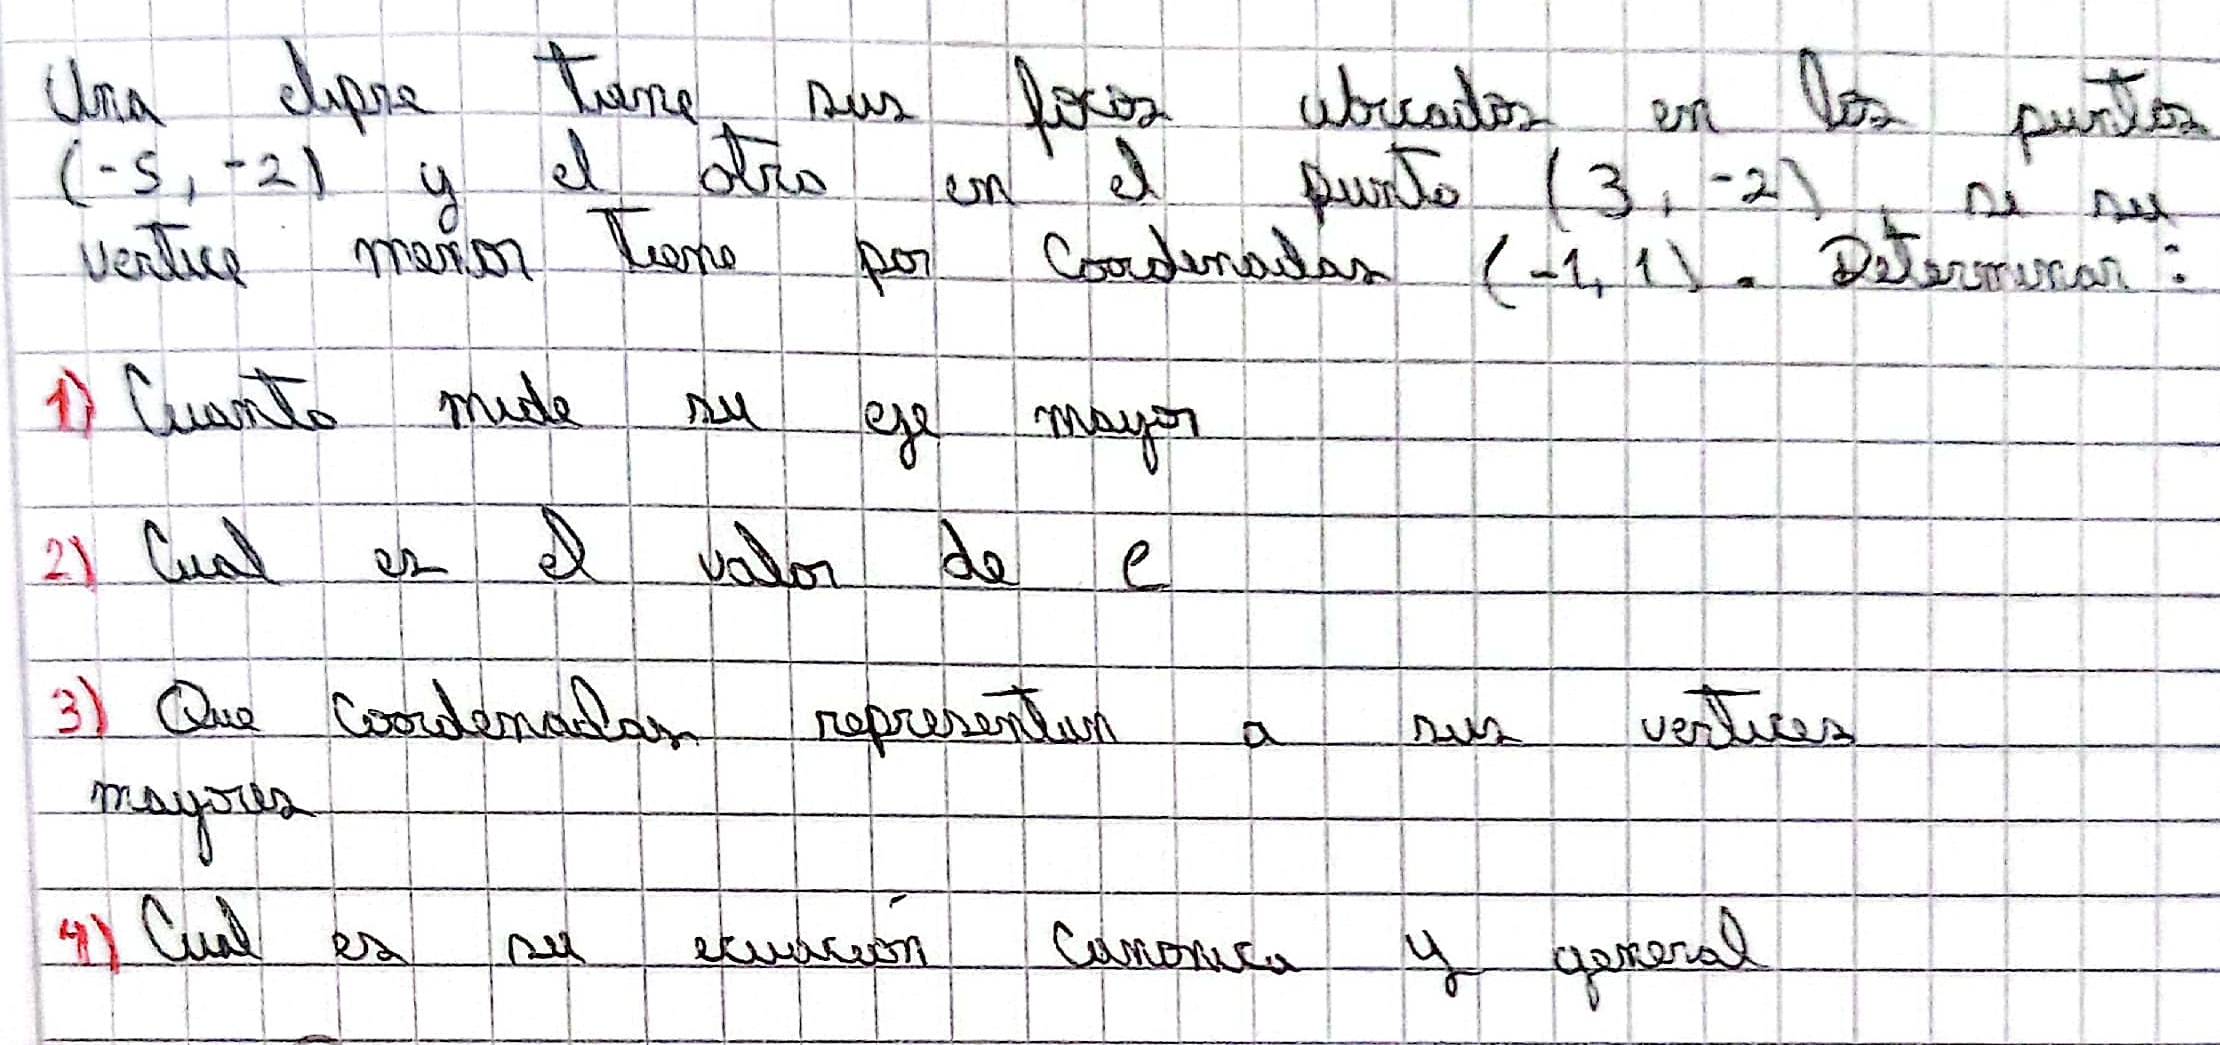 Una elipse tiene sus focos ubicados en los puntos
(-5, -2) y el otro en el punto (3, -2), si su
vertice menor tiene por coordenadas (-1, 1). Determinar:
1) Cuanto mide su eje mayor
2) Cual es el valor de e
3) Que coordenadas representan a sus vertices
mayores
4) Cual es su ecuación canonica y general